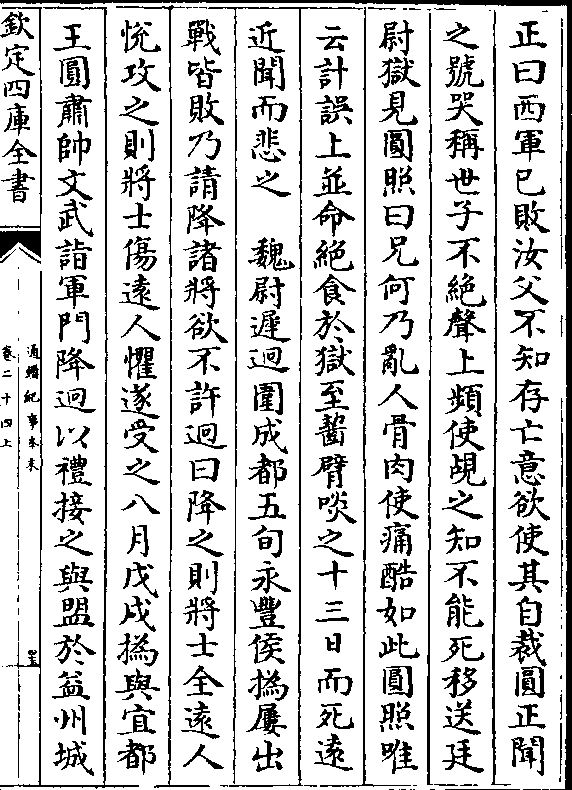 正曰西軍已敗汝父不知存亡意欲使其自裁圓正聞
之號哭稱世子不絶聲上頻使覘之知不能死移送廷
尉獄見圓照曰兄何乃亂人骨肉使痛酷如此圓照唯
云計誤上並命絶食於獄至齧臂啖之十三日而死逺
近聞而悲之　魏尉遲迥圍成都五旬永豐侯撝屢出
戰皆敗乃請降諸將欲不許迥曰降之則將士全逺人
悦攻之則將士傷逺人懼遂受之八月戊戌撝與宜都
王圓肅帥文武詣軍門降迥以禮接之與盟於益州城
欽定四庫全書
通鑑紀事本末
卷二十四上